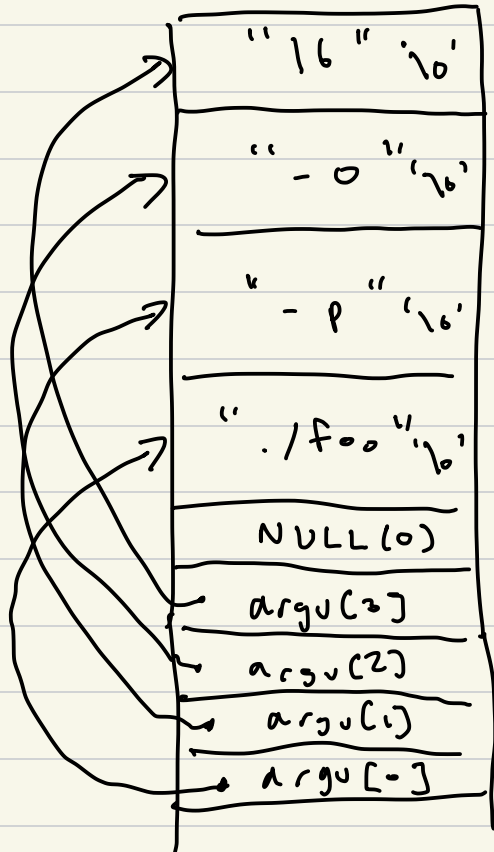 "16" '\0'
"-o" '\0'
"-p" '\0'
"./foo" '\0'
NULL(0)
argv[3]
argv[2]
argv[1]
argv[0]